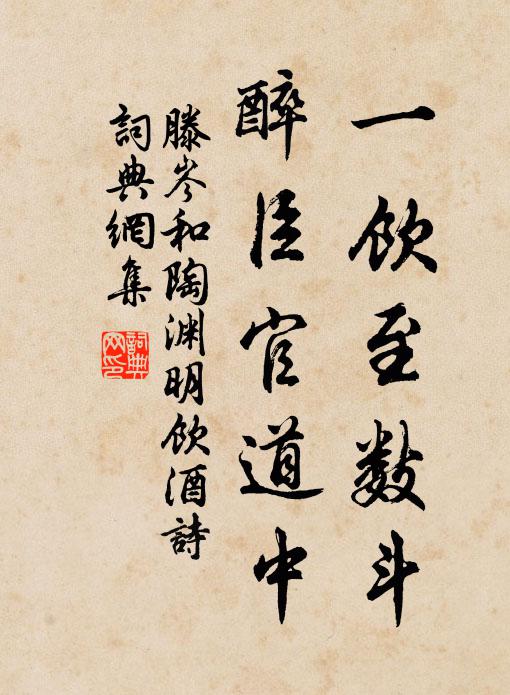 一飲至數斗
醉臣官道中
滕岑和陶渊明飲酒詩
詞典網集
詞典
网印